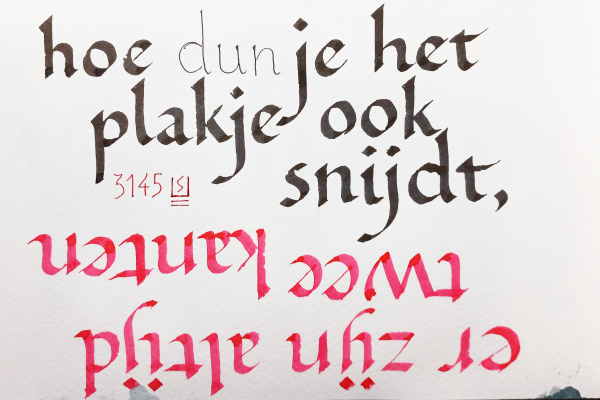 hoe dun je het
plakje ook
snijdt,
3145 LS
er zijn altijd
twee kanten